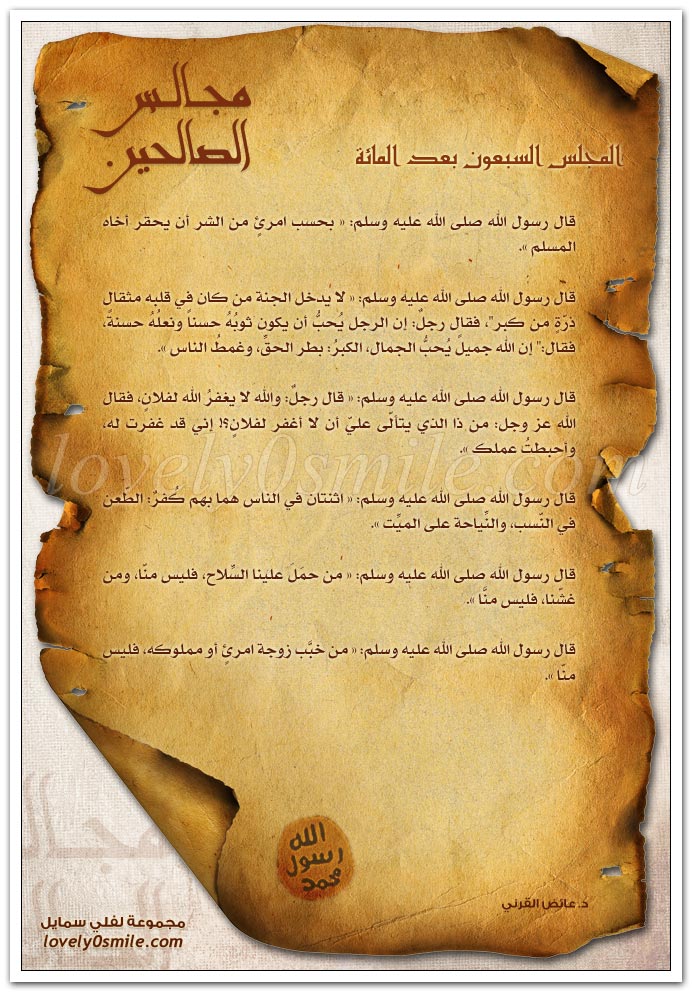 مجالس
الصالحين
المجلس السبعون بعد المائة
قال رسول الله صلى الله عليه وسلم: « بحسب امرئٍ من الشر أن يحقر أخاه
المسلم ».
قال رسول الله صلى الله عليه وسلم: « لا يدخل الجنة من كان في قلبه مثقال
ذرّةٍ من كبر"، فقال رجلٌ: إن الرجل يُحبُّ أن يكون ثوبُهُ حسناً ونعلُهُ حسنةً،
فقال:" إن الله جميلٌ يُحبُّ الجمال، الكبرُ: بطر الحقِّ، وغمطُ الناس ».
قال رسول الله صلى الله عليه وسلم: « قال رجلٌ: والله لا يغفرُ الله لفلانٍ، فقال
الله عز وجل: من ذا الذي يتألّى عليّ أن لا أغفر لفلانٍ؟! إني قد غفرت له،
وأحبطتُ عملك ».
lovely0smile.com
قال رسول الله صلى الله عليه وسلم: « اثنتان في الناس هما بهم كُفرٌ: الطّعن
في النّسب، والنِّياحة على الميِّت ».
قال رسول الله صلى الله عليه وسلم: « من حمَلَ علينا السِّلاح، فليس منّا، ومن
غشّنا، فليس منَّا ».
قال رسول الله صلى الله عليه وسلم: « من خبَّب زوجة امرئٍ أو مملوكه، فليس
منّا ».
الله
رسول
محمد
د.عائض القرني
مجموعة لفلي سمايل
lovely0smile.com